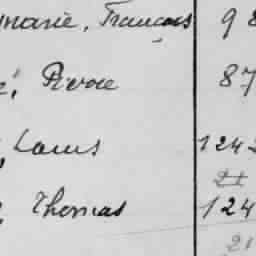 marie, François 98
e, Pierre 87
, Louis 1242
21
, Thomas 124
21